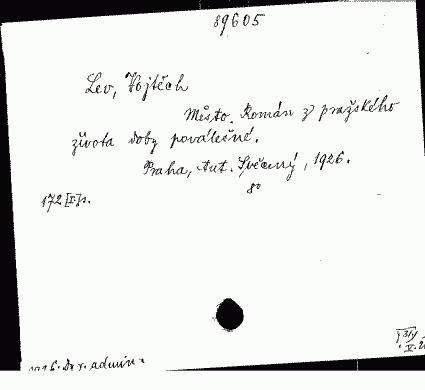 89605
Lev, Vojtěch
Město. Román z pražského
života doby poválečné.
Praha, Aut. Svěcený, 1926.
8°
172 [I] s.
admin